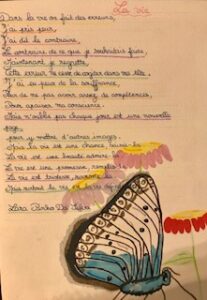 La vie
Dans la vie on fait des erreurs,
J'ai pris peur,
J'ai dit le contraire,
Le contraire de ce que je souhaitais faire.
Maintenant je regrette,
Cette erreur ne cesse de ronger dans ma tête,
J'ai eu peur de la souffrance,
Peur de ne pas avoir assez de compétences,
Pour apaiser ma conscience.
Mais n'oublie pas chaque jour est une nouvelle
page,
pour y mettre d'autres images.
Mais la vie est une chance, saisis-la
La vie est une beauté admire-la
La vie est une promesse, remplis-la
La vie est tendresse,
Mais surtout la vie est la vie
Lara Da Silva